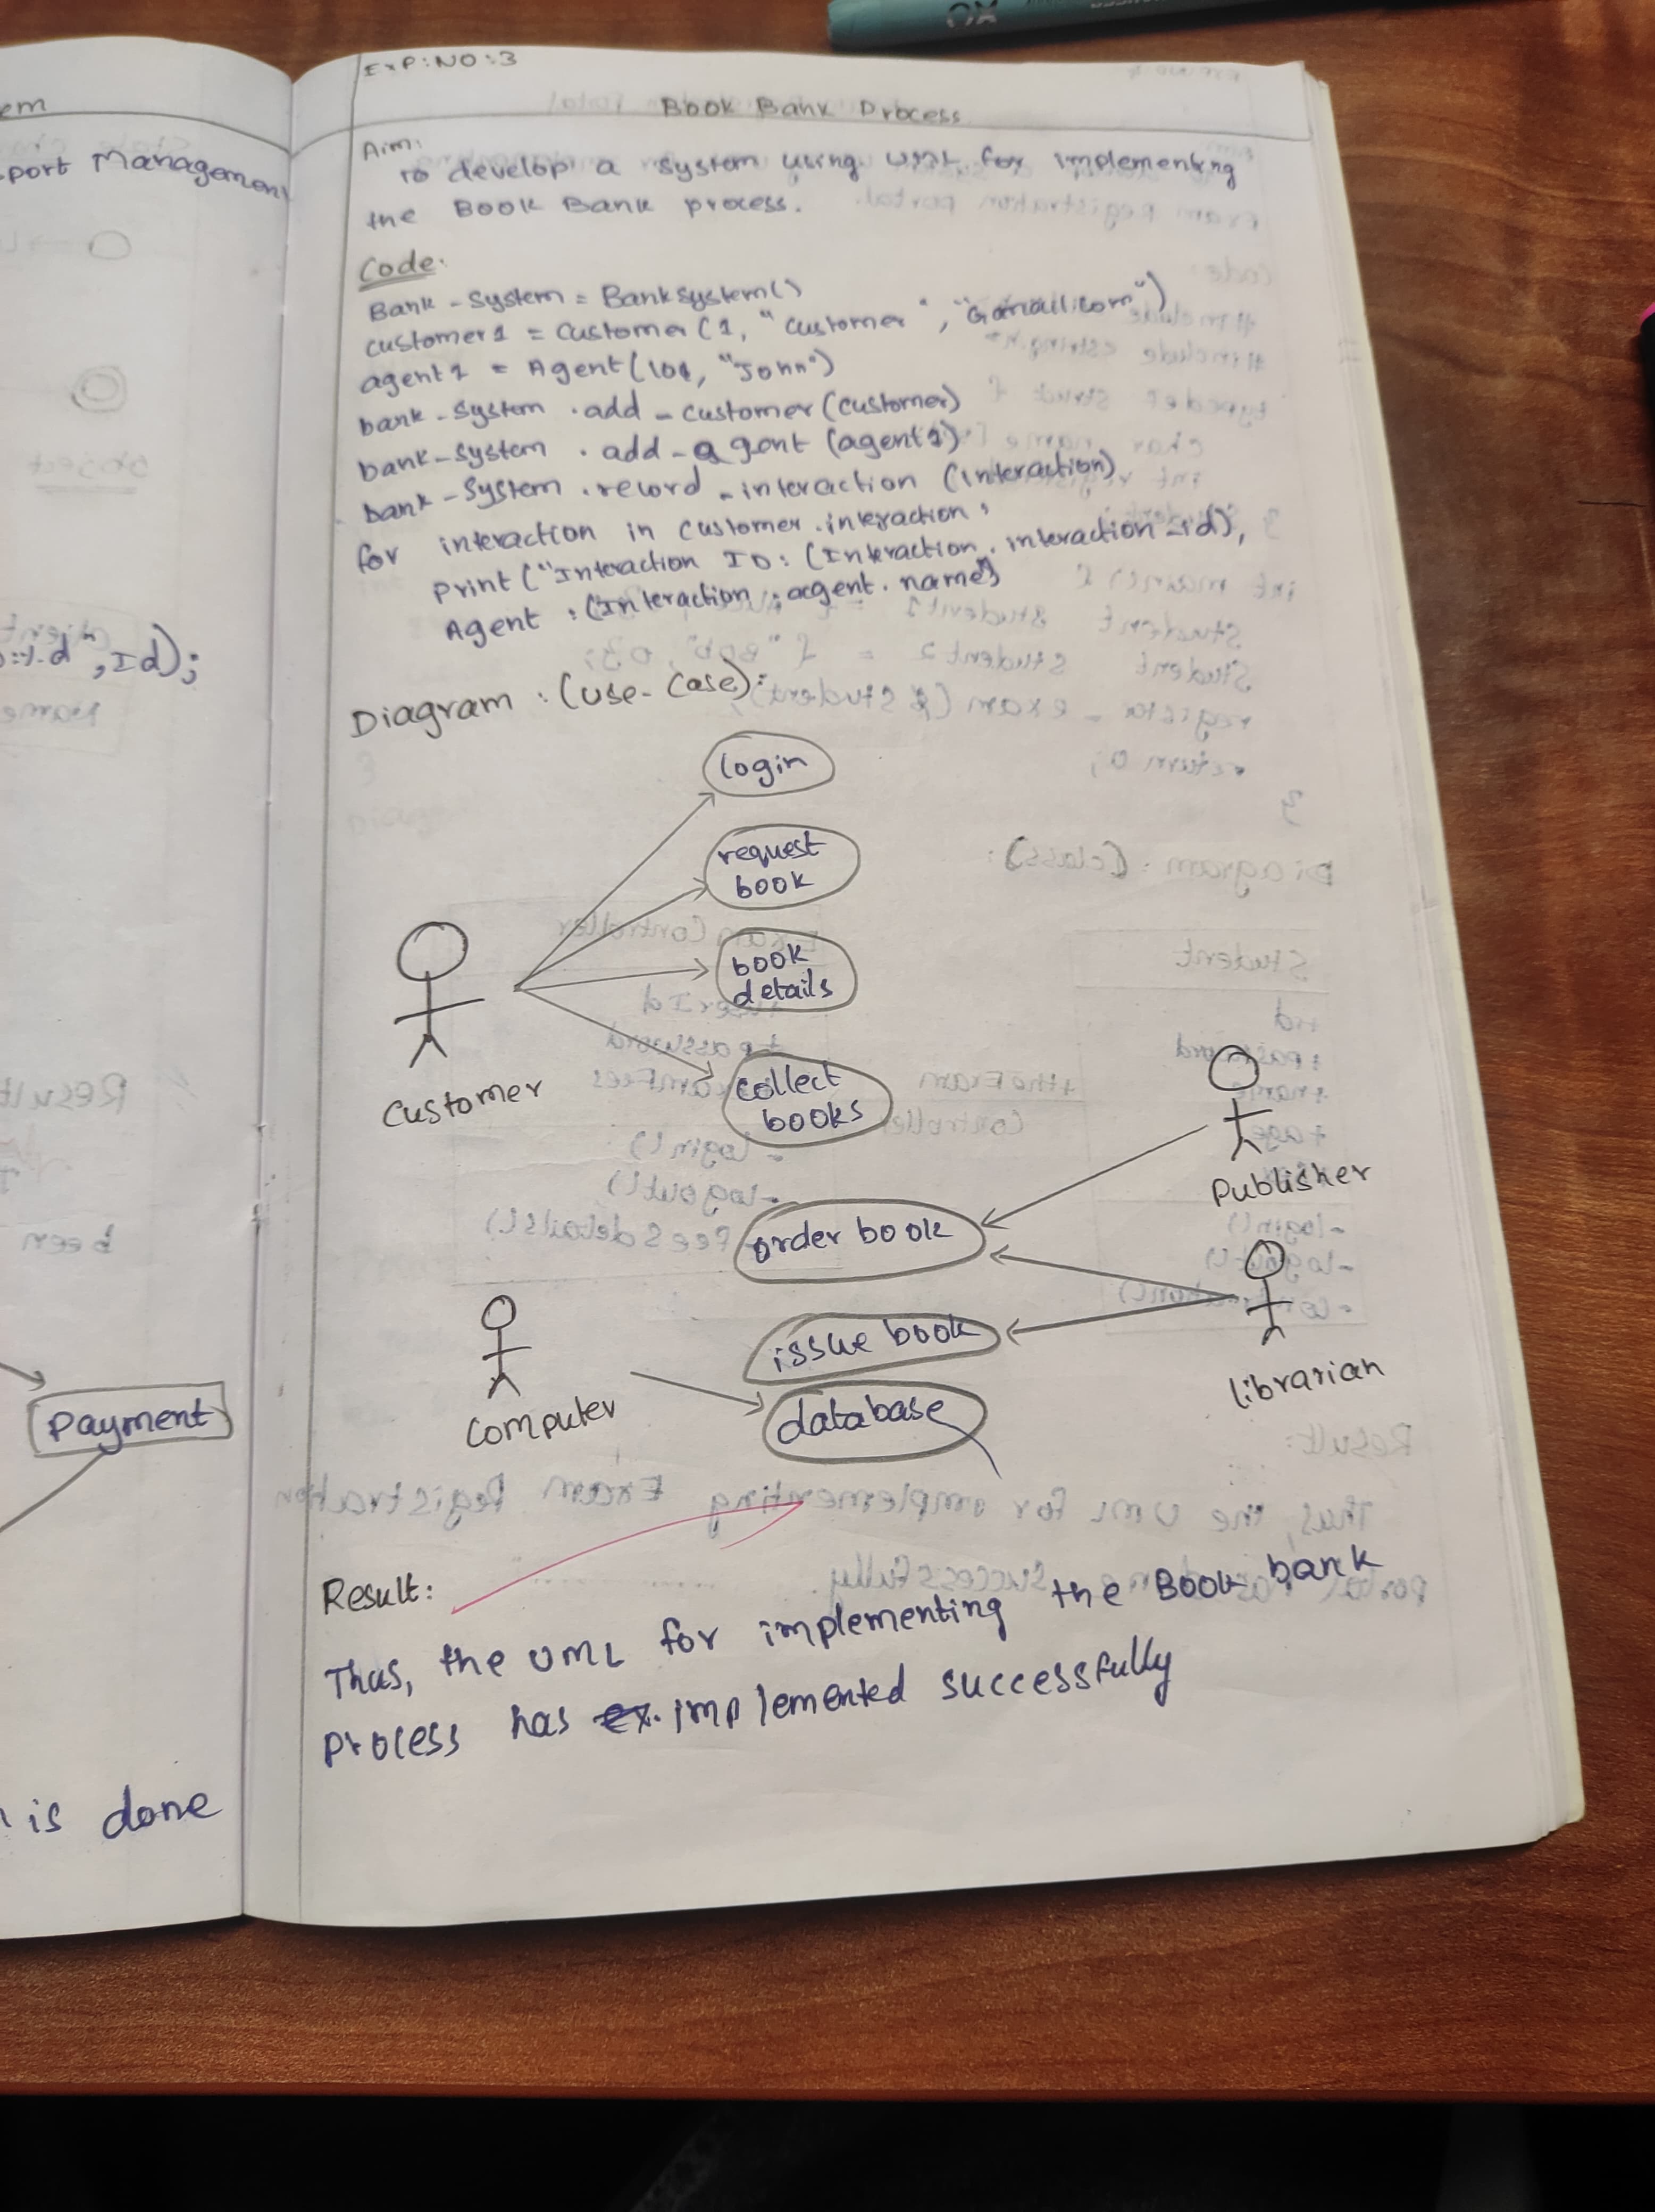 em
port Management
", Id);
Payment
is done
EXP:NO:3
Book Bank Process
Aim:
To develop a system using UML for implementing
the Book Bank process.
Code:
Bank-System = BankSystem()
customer1 = Customer (1, "customer", "Gmail.com")
agent1 = Agent(101, "John")
bank-system .add-customer(customer)
bank-system .add-agent (agent1)
bank-system .record-interaction (interaction)
for interaction in customer.interaction:
print("Interaction ID: (Interaction. interaction-id),
Agent : (Interaction.agent.name)
Diagram : (use-case):
login
request
book
book
details
Customer
collect
books
Publisher
order book
issue book
librarian
Computer
database
Result:
Thus, the UML for implementing the Book bank
process has ex. implemented successfully